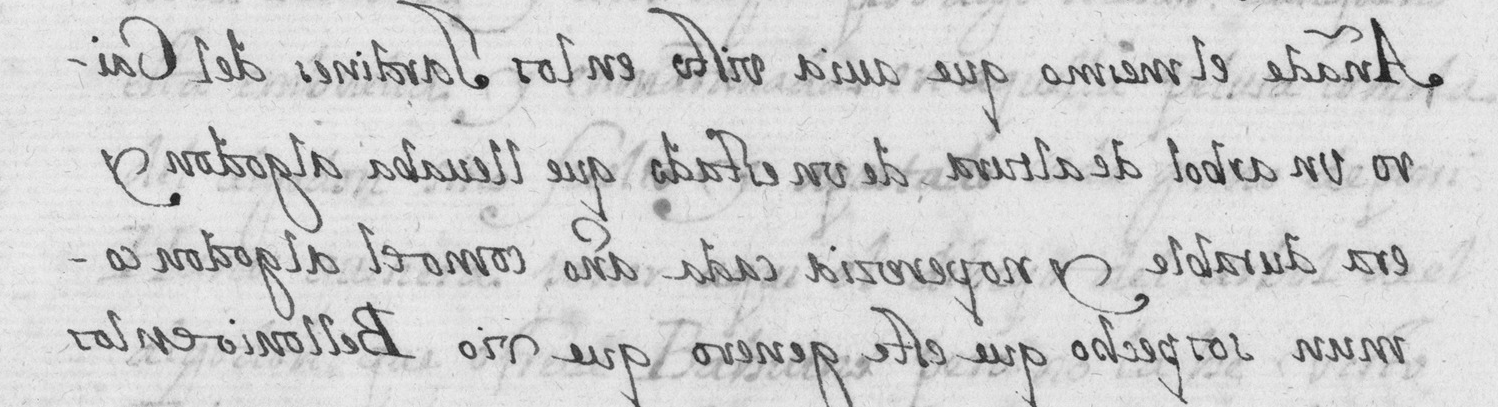 Añade el mesmo que auia visto en los Jardines del Cai-
ro vn arbol de altura de vn estado que lleuaba algodon y
era durable y no perezia cada año como el algodon co-
mun sospecho que este genero que vio Bellonio en los